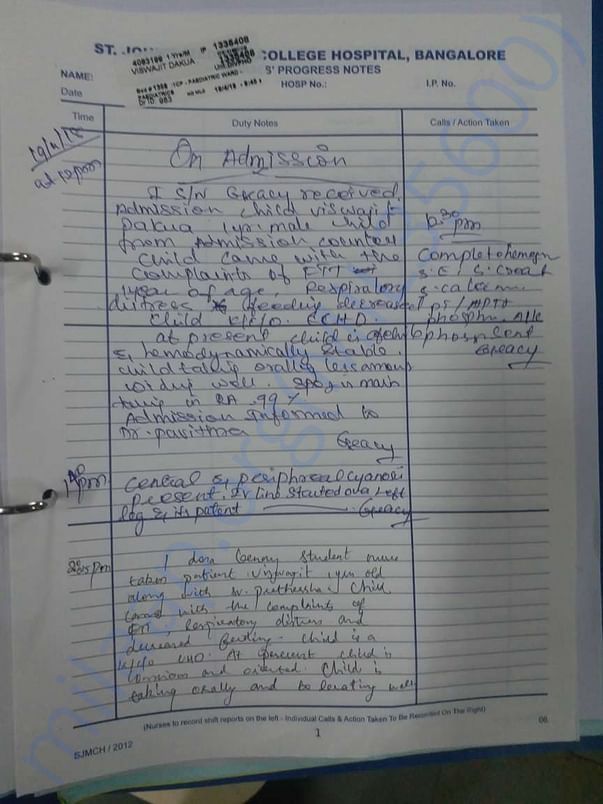 ST. COLLEGE HOSPITAL, BANGALORE
4093199 1 Yrs/M IP 1336408
VISWAJIT DAKUA
S' PROGRESS NOTES
NAME:
HOSP No.: I.P. No.
Date
Time Duty Notes Calls / Action Taken
On Admission
at 12pm
I S/N Greacy received
Admission child viswajit
Dakua 1yr male child
from Admission counter
child came with the
complaints of FTT
1year of age, Respiratory
distress feeding decreased
child K/C/O CCHD.
at present child is
& hemodynamically stable.
child taking orally
voiding well. SPO2 is main
taining in RA 99%
Admission Informed to
Dr. pavithra
Greacy
12.30 pm
Complete hemogm
S.E, S. Creat
S. calcium
PT / APTT
phosph
sent
Greacy
Central & peripheral cyanosis
present. IV line started on a Left
leg & its patent Greacy
I dona benny student nurse
taken patient viswajit 1yr old
along with sr. preetheesha. Child
came with the complaints of
FTT, respiratory distress and
decreased feeding. child is a
K/C/O CHD. At present child is
conscious and oriented. Child is
taking orally and tolerating well
(Nurses to record shift reports on the left - Individual Calls & Action Taken To Be Recorded On The Right)
1
06
SJMCH / 2012